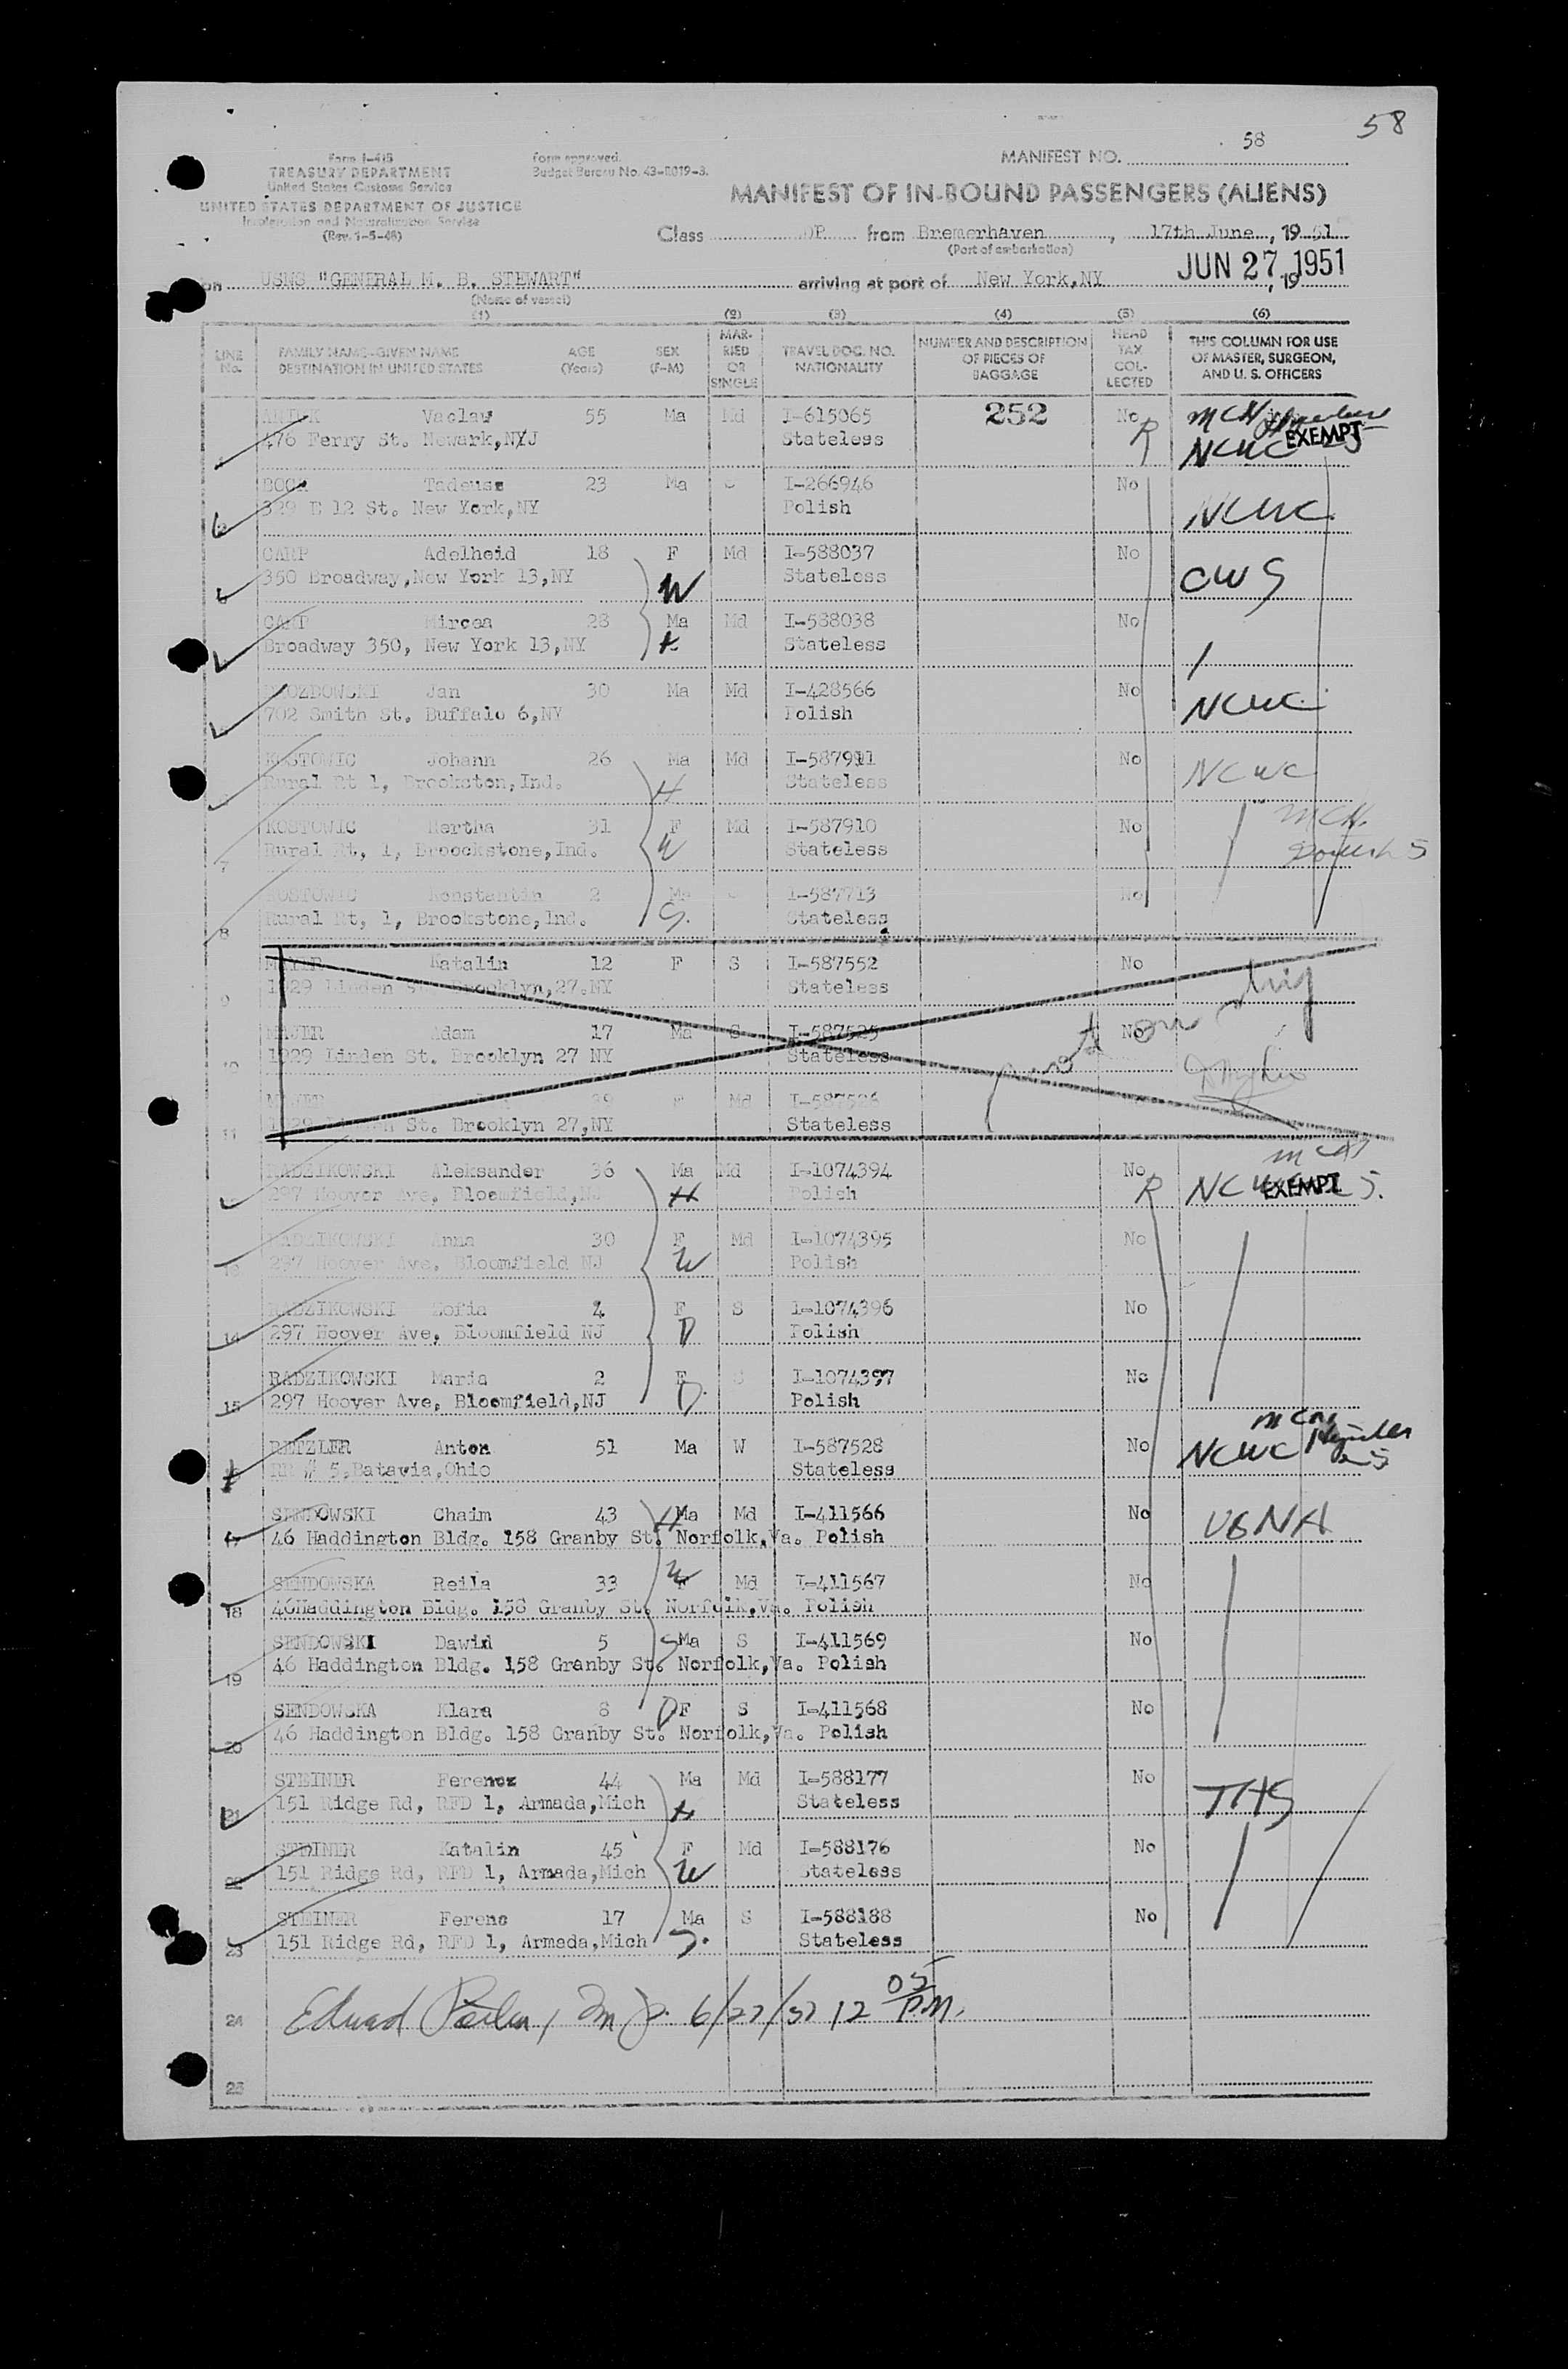 58
Form I-415
TREASURY DEPARTMENT
United States Customs Service
UNITED STATES DEPARTMENT OF JUSTICE
Immigration and Naturalization Service
(Rev. 1-5-48)
Form approved.
Budget Bureau No. 43-R019-3.
MANIFEST NO. 58
MANIFEST OF IN-BOUND PASSENGERS (ALIENS)
Class DP from Bremerhaven, 17th June, 1951
(Port of embarkation)
on USNS "GENERAL M. B. STEWART" arriving at port of New York,NY JUN 27 1951, 19
(Name of vessel)
(1) (2) (3) (4) (5) (6)
LINE No. FAMILY NAME-GIVEN NAME DESTINATION IN UNITED STATES AGE (Years) SEX (F-M) MARRIED OR SINGLE TRAVEL DOC. NO. NATIONALITY NUMBER AND DESCRIPTION OF PIECES OF BAGGAGE HEAD TAX COLLECTED THIS COLUMN FOR USE OF MASTER, SURGEON, AND U. S. OFFICERS
Vaclaw 55 Ma Md I-615065 252 No
476 Ferry St. Newark,NYJ Stateless R NCWC EXEMPT
Tadeusz 23 Ma S I-266946 No
329 E 12 St. New York,NY Polish NCWC
CARP Adelheid 18 F Md I-588037 No
350 Broadway,New York 13,NY W Stateless CWS
CARP Mircea 28 Ma Md I-588038 No
Broadway 350, New York 13,NY H Stateless
Jan 30 Ma Md I-428566 No
702 Smith St. Buffalo 6,NY Polish NCWC
KOSTOWIC Johann 26 Ma Md I-587911 No
Rural Rt 1, Brookston,Ind. H Stateless NCWC
7 KOSTOWIC Hertha 31 F Md I-587910 No
Rural Rt, 1, Broockstone,Ind. W Stateless
8 KOSTOWIC Konstantin 2 Ma S I-587713 No
Rural Rt, 1, Brookstone,Ind. S. Stateless
9 MAJER Katalin 12 F S I-587552 No
1029 Linden St. Brooklyn,27.NY Stateless
10 MAJER Adam 17 Ma S I-587525 No
1029 Linden St. Brooklyn 27 NY Stateless not on ship
11 MAJER 39 F Md I-587526
1029 Linden St. Brooklyn 27,NY Stateless
RADZIKOWSKI Aleksander 36 Ma Md I-1074394 No
297 Hoover Ave, Bloomfield,NJ H Polish R EXEMPT
13 RADZIKOWSKI Anna 30 F Md I-1074395 No
297 Hoover Ave, Bloomfield NJ W Polish
14 RADZIKOWSKI Zofia 4 F S I-1074396 No
297 Hoover Ave, Bloomfield NJ D Polish
15 RADZIKOWSKI Maria 2 F S I-1074397 No
297 Hoover Ave, Bloomfield,NJ D. Polish
RETZLER Anton 51 Ma W I-587528 No
RR # 5,Batavia,Ohio Stateless NCWC
17 SENDOWSKI Chaim 43 H Ma Md I-411566 No
46 Haddington Bldg. 158 Granby St. Norfolk,Va. Polish USNA
18 SENDOWSKA Reila 33 W F Md I-411567 No
46Haddington Bldg. 158 Granby St. Norfolk,Va. Polish
19 SENDOWSKI Dawid 5 S Ma S I-411569 No
46 Haddington Bldg. 158 Granby St. Norfolk,Va. Polish
20 SENDOWSKA Klara 8 D F S I-411568 No
46 Haddington Bldg. 158 Granby St. Norfolk,Va. Polish
21 STEINER Ferencz 44 Ma Md I-588177 No
151 Ridge Rd, RFD 1, Armada,Mich H Stateless THS
22 STEINER Katalin 45 F Md I-588176 No
151 Ridge Rd, RFD 1, Armada,Mich W Stateless
23 STEINER Ferenc 17 Ma S I-588188 No
151 Ridge Rd, RFD 1, Armada,Mich S. Stateless
24 12 05 P.M.
25